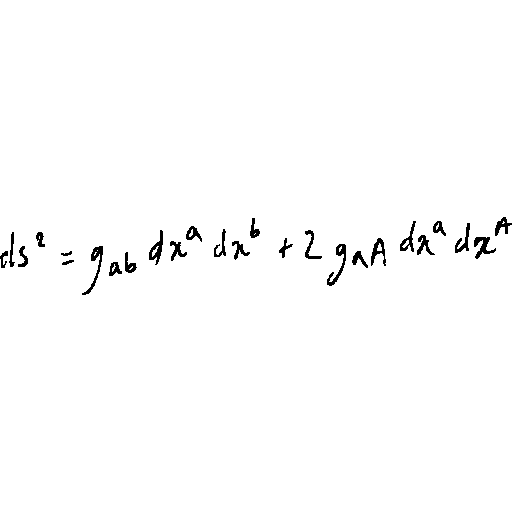 $ds^2 = g_{ab} dx^a dx^b + 2 g_{aA} dx^a dx^A$